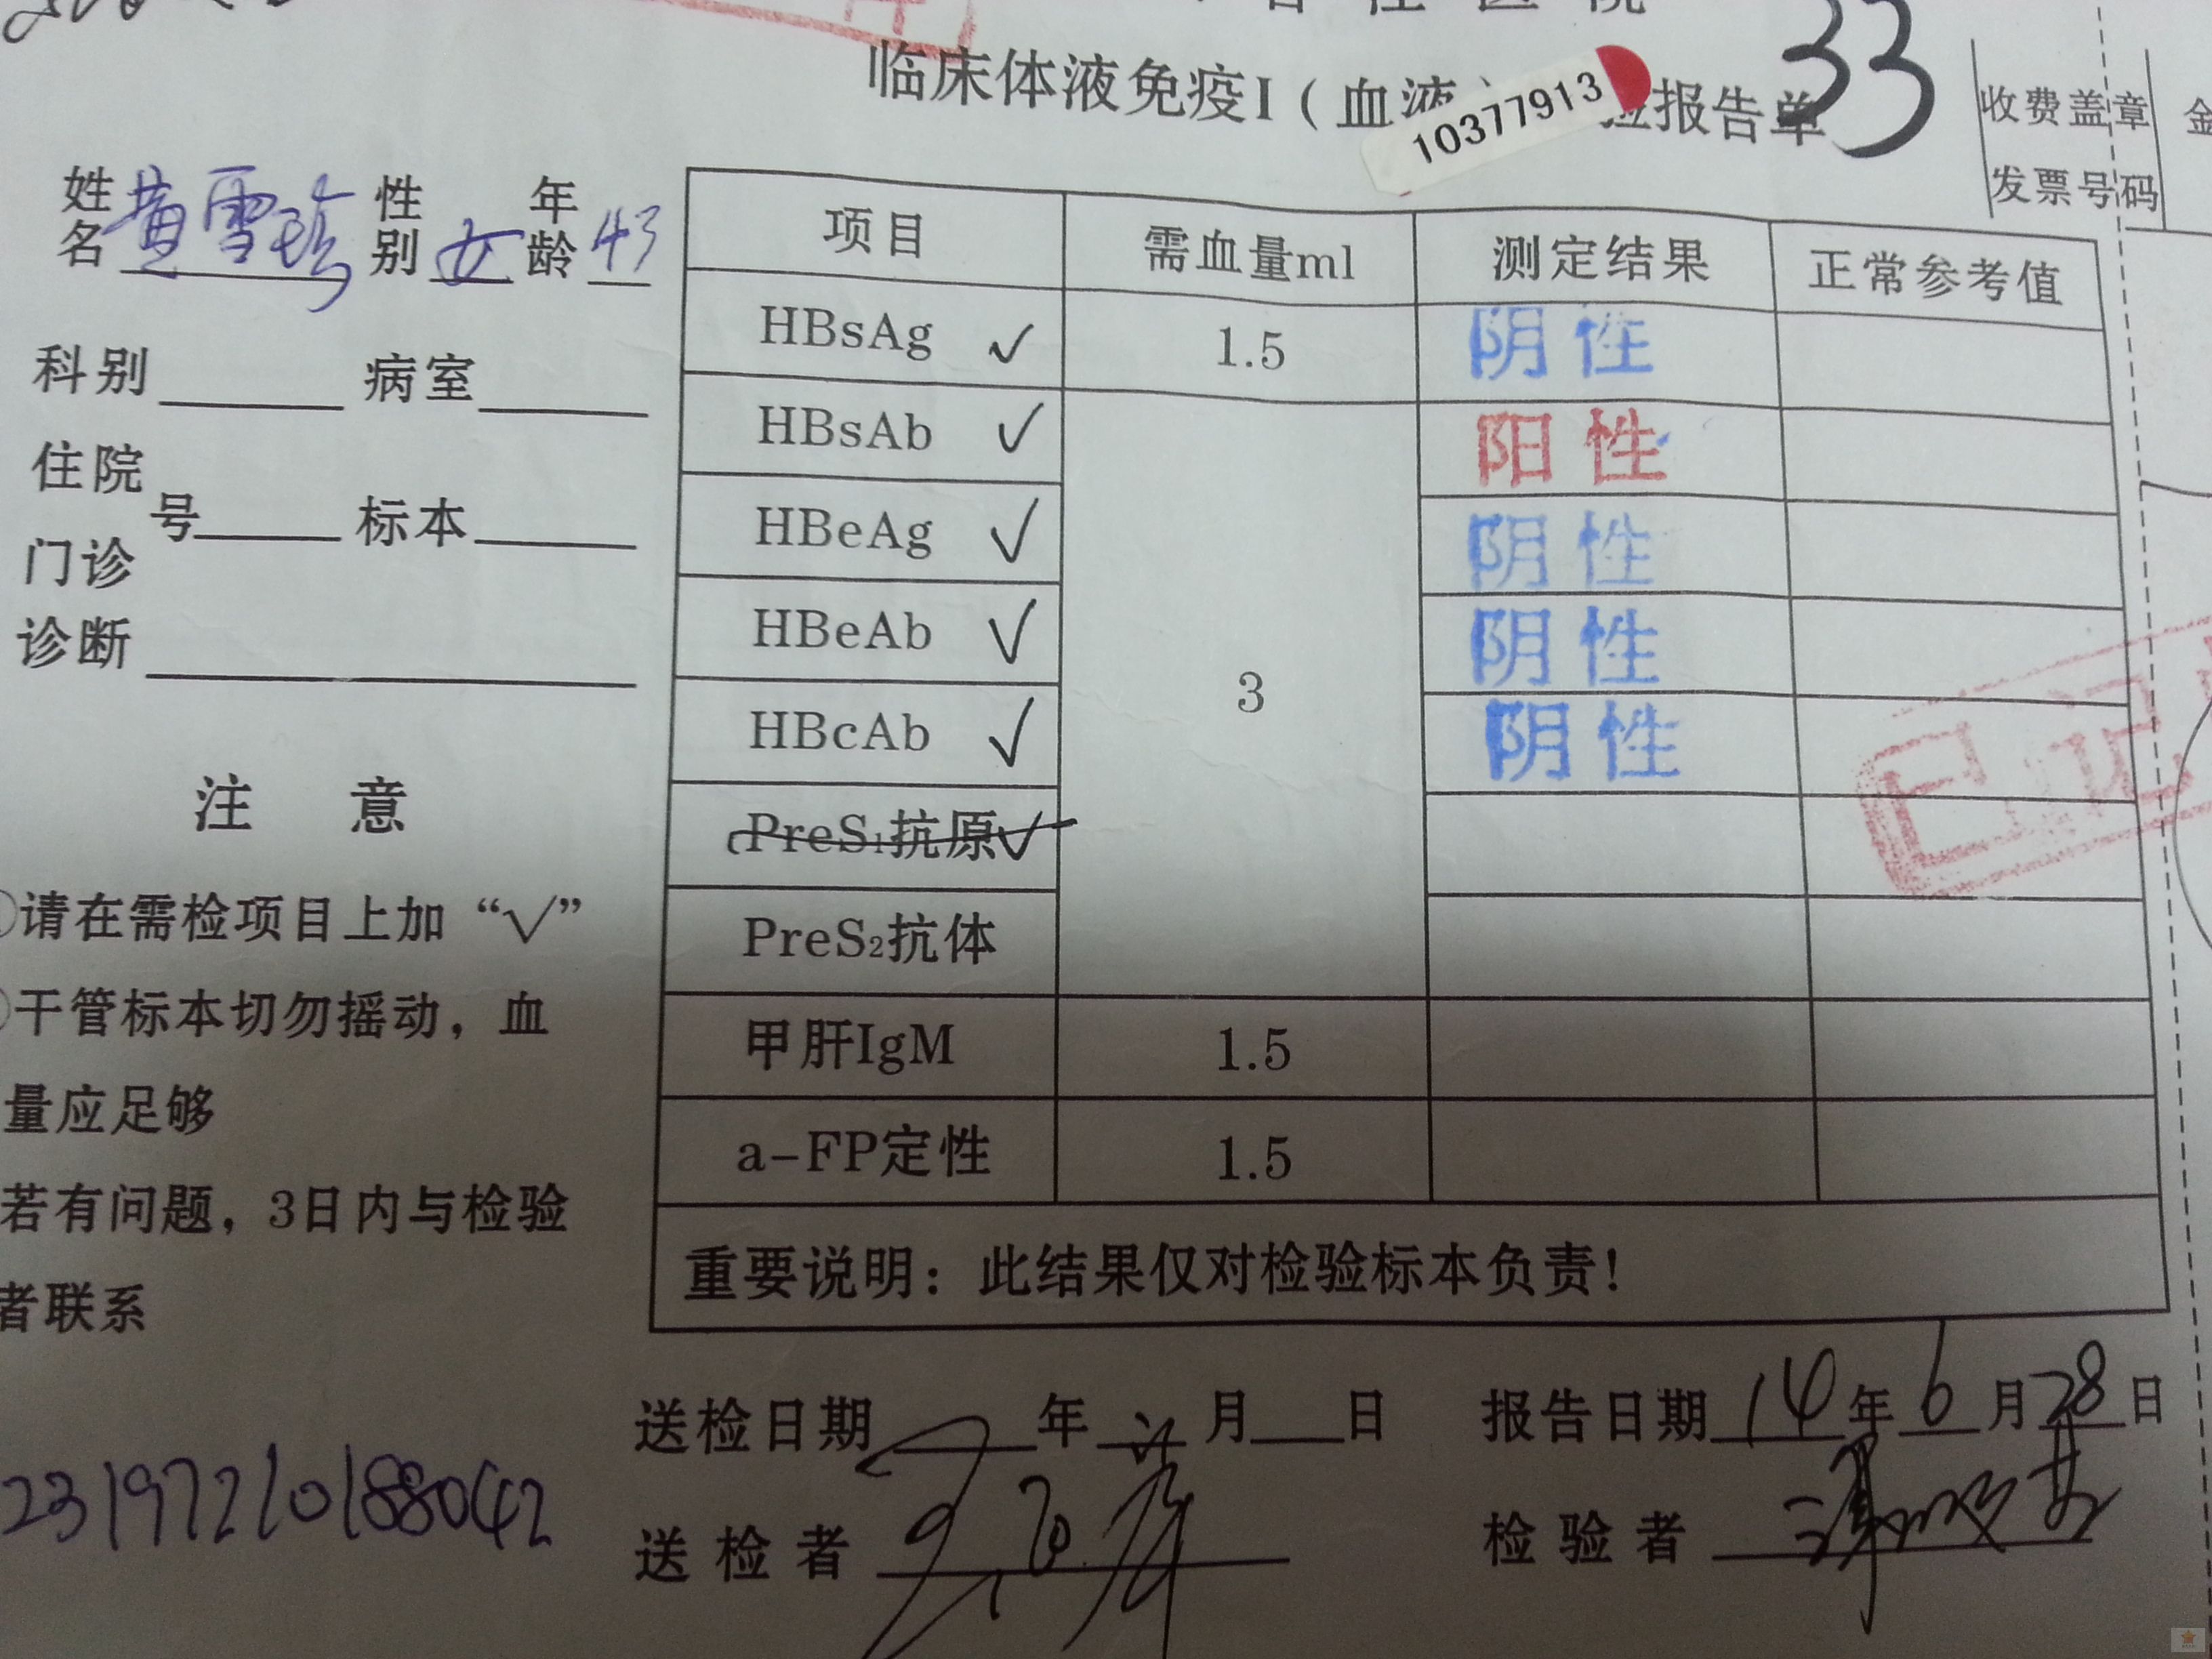 临床体液免疫I（血液
10377913
验报告单
33
收费盖章
金
发票号码
姓名 黄雪珍 性别 女 年龄 43
科别 病室
住院
号 标本
门诊
诊断
注 意
请在需检项目上加“√”
干管标本切勿摇动，血
量应足够
若有问题，3日内与检验
者联系
项目 需血量ml 测定结果 正常参考值
HBsAg √ 1.5 阴性
HBsAb √ 阳性
HBeAg √ 阴性
HBeAb √ 阴性
3
HBcAb √ 阴性
PreS1抗原√
PreS2抗体
甲肝IgM 1.5
a-FP定性 1.5
重要说明：此结果仅对检验标本负责！
送检日期 年 月 日 报告日期 14年6月28日
送检者 检验者
23197210188042